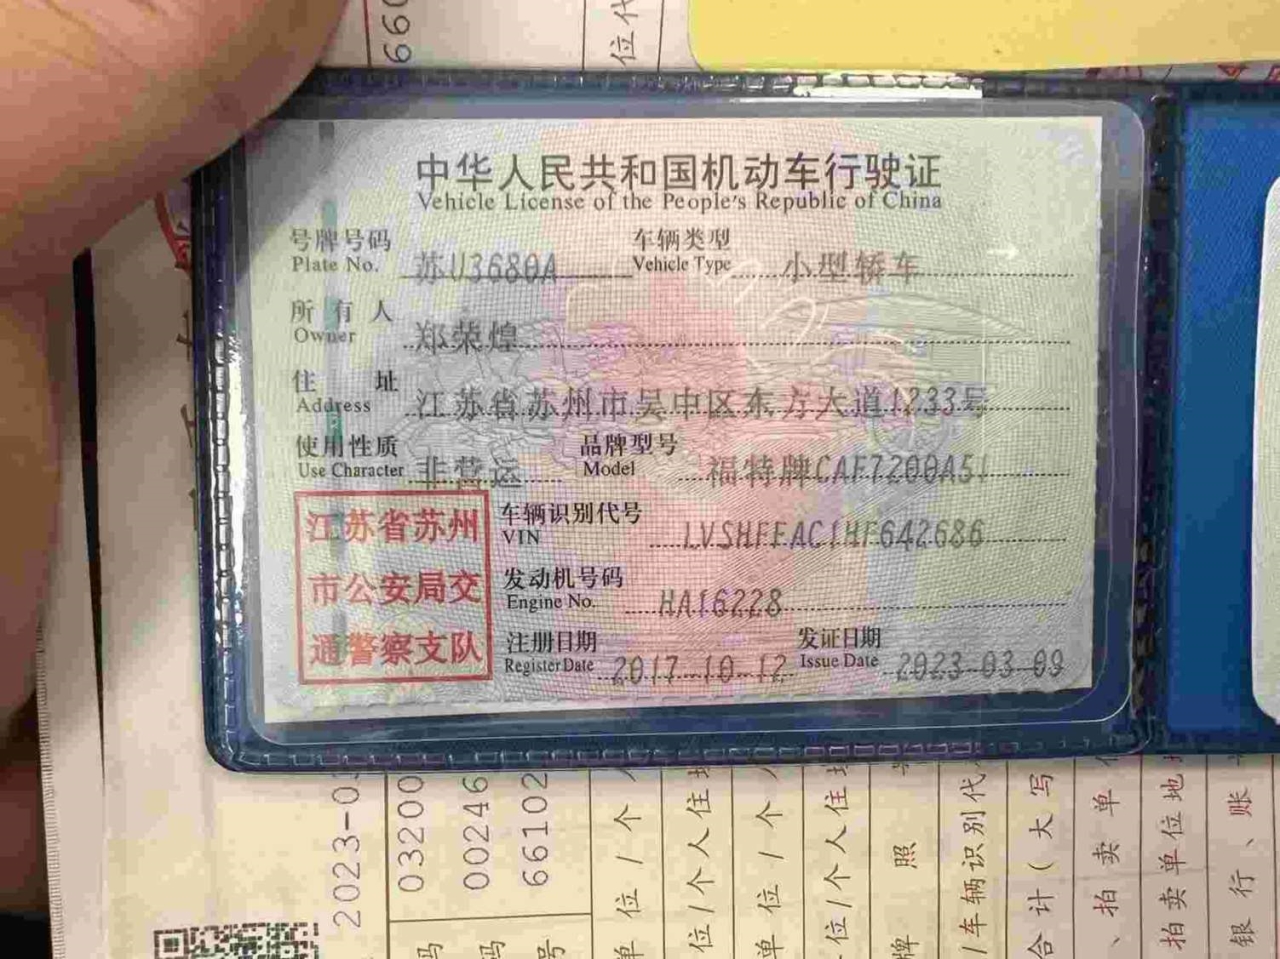 660
位代
中华人民共和国机动车行驶证
Vehicle License of the People's Republic of China
号牌号码 苏U3680A 车辆类型 小型轿车
Plate No. Vehicle Type
所有人 郑荣煌
Owner
住址 江苏省苏州市吴中区东方大道1233号
Address
使用性质 非营运 品牌型号 福特牌CAF7200A51
Use Character Model
江苏省苏州
市公安局交
通警察支队
车辆识别代号 LVSHFEAC1HF642686
VIN
发动机号码 HA16228
Engine No.
注册日期 2017-10-12 发证日期 2023-03-09
Register Date Issue Date
2023-0
03200
00246
66102
码
码
号
单位/个
位/个人住
单位/个
位/个人住
牌照
/车辆识别代
合计(大写
、拍卖单
拍卖单位地
银行、账